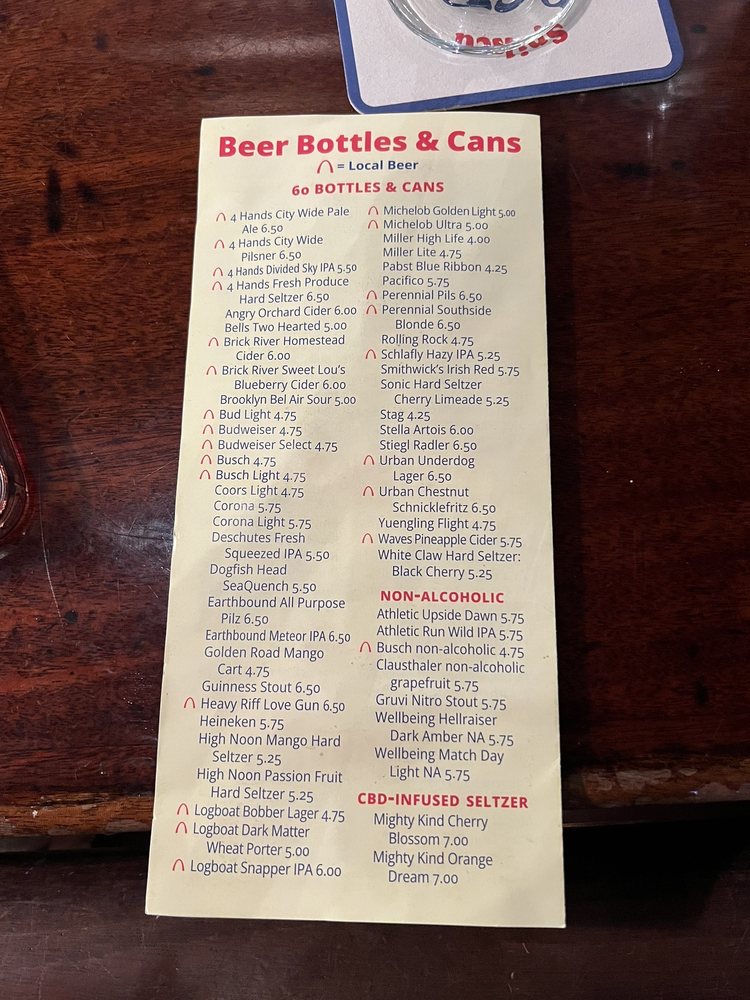 Beer Bottles & Cans
= Local Beer
60 BOTTLES & CANS
4 Hands City Wide Pale
Ale 6.50
4 Hands City Wide
Pilsner 6.50
4 Hands Divided Sky IPA 5.50
4 Hands Fresh Produce
Hard Seltzer 6.50
Angry Orchard Cider 6.00
Bells Two Hearted 5.00
Brick River Homestead
Cider 6.00
Brick River Sweet Lou's
Blueberry Cider 6.00
Brooklyn Bel Air Sour 5.00
Bud Light 4.75
Budweiser 4.75
Budweiser Select 4.75
Busch 4.75
Busch Light 4.75
Coors Light 4.75
Corona 5.75
Corona Light 5.75
Deschutes Fresh
Squeezed IPA 5.50
Dogfish Head
SeaQuench 5.50
Earthbound All Purpose
Pilz 6.50
Earthbound Meteor IPA 6.50
Golden Road Mango
Cart 4.75
Guinness Stout 6.50
Heavy Riff Love Gun 6.50
Heineken 5.75
High Noon Mango Hard
Seltzer 5.25
High Noon Passion Fruit
Hard Seltzer 5.25
Logboat Bobber Lager 4.75
Logboat Dark Matter
Wheat Porter 5.00
Logboat Snapper IPA 6.00
Michelob Golden Light 5.00
Michelob Ultra 5.00
Miller High Life 4.00
Miller Lite 4.75
Pabst Blue Ribbon 4.25
Pacifico 5.75
Perennial Pils 6.50
Perennial Southside
Blonde 6.50
Rolling Rock 4.75
Schlafly Hazy IPA 5.25
Smithwick's Irish Red 5.75
Sonic Hard Seltzer
Cherry Limeade 5.25
Stag 4.25
Stella Artois 6.00
Stiegl Radler 6.50
Urban Underdog
Lager 6.50
Urban Chestnut
Schnicklefritz 6.50
Yuengling Flight 4.75
Waves Pineapple Cider 5.75
White Claw Hard Seltzer:
Black Cherry 5.25
NON-ALCOHOLIC
Athletic Upside Dawn 5.75
Athletic Run Wild IPA 5.75
Busch non-alcoholic 4.75
Clausthaler non-alcoholic
grapefruit 5.75
Gruvi Nitro Stout 5.75
Wellbeing Hellraiser
Dark Amber NA 5.75
Wellbeing Match Day
Light NA 5.75
CBD-INFUSED SELTZER
Mighty Kind Cherry
Blossom 7.00
Mighty Kind Orange
Dream 7.00